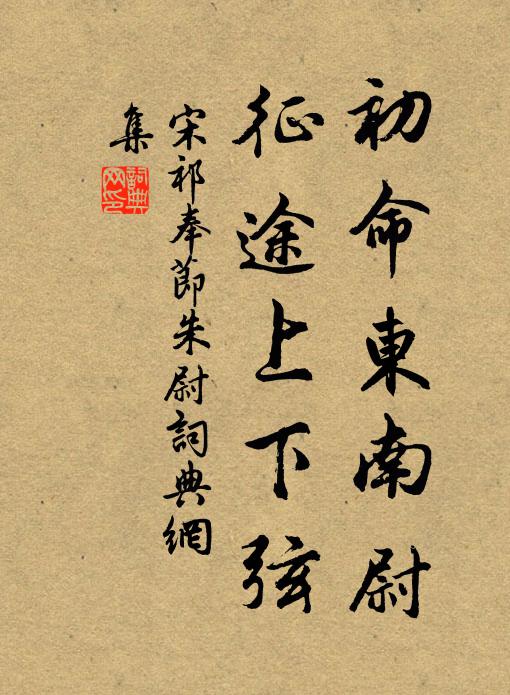 初命東南尉
征途上下弦
宋祁奉節朱尉詞典網
集
詞典
网印